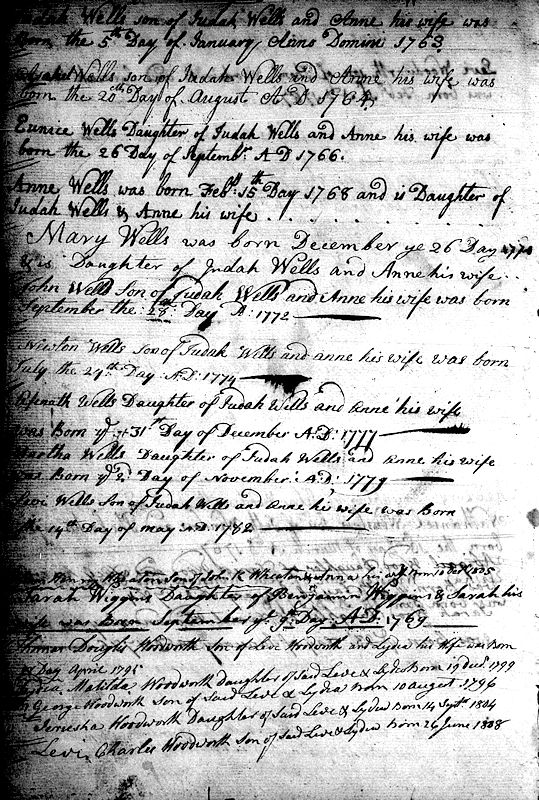 Judah Wells son of Judah Wells and Anne his wife was
Born the 5th Day of January Anno Domini 1763.
Wells son of Judah Wells and Anne his wife was
born the 20th Day of August A D 1764,
Eunice Wells Daughter of Judah Wells and Anne his wife was
born the 26 Day of Septembr A D 1766.
Anne Wells was born Febry 15th Day 1768 and is Daughter of
Judah Wells & Anne his wife . . . . . .
Mary Wells was born December ye 26 Day
& is Daughter of Judah Wells and Anne his wife . .
John Wells Son of Judah Wells and Anne his wife was born
September the 28 Day A D: 1772
Newton Wells son of Judah Wells and anne his wife was born
July the 29th Day A:D: 1774
Asenath Wells Daughter of Judah Wells and Anne his wife
was Born ye 31st Day of December A:D: 1777
Martha Wells Daughter of Judah Wells and Anne his wife
was Born ye 2d Day of November: A:D: 1779
Levi Wells Son of Judah Wells and Anne his wife was Born
the 14th Day of may A D: 1782
Henry Wheaton Son of John Wheaton & Anna his wife
Sarah Wiggins Daughter of Benjamin Wiggins & Sarah his
wife was Born September ye 9th Day A D. 1769
Thomas Douglas Woodworth Son of Levi Woodworth and Lydia his Wife was Born
Day April 1795
Lydia Matilda Woodworth Daughter of Said Levi & Lydia Born 19 Decr 1799
George Woodworth Son of Said Levi & Lydia Born 10 august 1796
Jerusha Woodworth Daughter of Said Levi & Lydia Born 14 Sept 1804
Levi Charles Woodworth Son of Said Levi & Lydia Born 26 June 1808